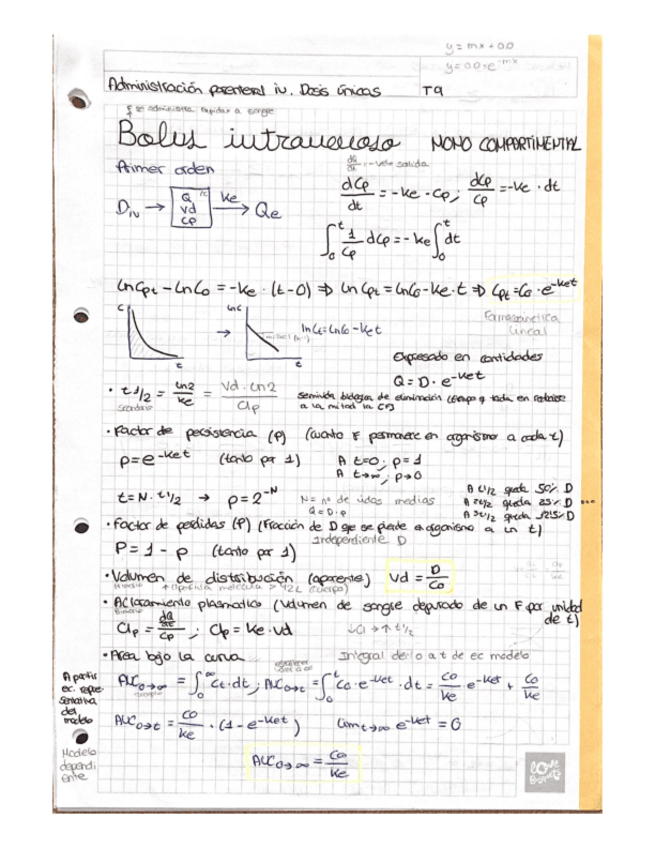 y = mx + 0.0
y = 0.0 · e^-mx
Administración parenteral iv. Dosis únicas T9
F se administra rápidas a sangre
Bolus intravenoso MONO COMPARTIMENTAL
dQ/dt = -Vde salida
Primer orden
dCp/dt = -Ke · Cp; dCp/Cp = -Ke · dt
Div → Q Vd Cp Ke → Qe
∫₀ᵗ 1/Cp dCp = -Ke ∫₀ᵗ dt
lnCpt - lnC0 = -Ke · (t-0) ⇒ ln Cpt = lnC0 - Ke · t ⇒ Cpt = C0 · e^-Ket
C t → lnC t lnCt = lnC0 - Ket
Farmacocinética lineal
Expresado en cantidades
Q = D · e^-Ket
· t1/2 = ln2/Ke = Vd · ln2/Clp
Secundario
semivida biológica de eliminación (tiempo q tarda en reducirse
a la mitad la CP)
· Factor de persistencia (p) (cuanto F permanece en organismo a cada t)
p = e^-Ket (tanto por 1) A t=0; p=1
A t→∞; p→0
t = N · t1/2 → p = 2^-N N = nº de vidas medias
Q = D · p
A t1/2 queda 50% D
A 2t1/2 queda 25% D ...
A 3t1/2 queda 12'5% D
· Factor de perdidas (P) (Fracción de D que se pierde en organismo a un t)
Independiente D
P = 1 - p (tanto por 1)
· Volumen de distribución (aparente) Vd = D/C0
· Aclaramiento plasmático (Volumen de sangre depurado de un F por unidad
de t)
Clp = dQ/dt/Cp ; Clp = Ke · Vd ↓Cl → ↑ t1/2
· Area bajo la curva Integral de 0 a t de ec modelo
A partir
ec. repre-
sentativa
del
modelo
AUC0→∞ = ∫₀^∞ Ct · dt; AUC0→t = ∫₀ᵗ C0 · e^-Ket · dt = C0/Ke e^-Ket + C0/Ke
AUC0→t = C0/Ke · (1 - e^-Ket) Lim t→∞ e^-Ket = 0
Modelo
dependi
ente
AUC0→∞ = C0/Ke